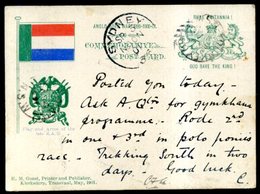 ANGLO-
SYDNEY
COMM
POST CARD.
RULE BRITANNIA!
GOD SAVE THE KING!
Flag and Arms of the
late S.A.R.
H. M. Guest, Printer and Publisher,
Klerksdorp, Transvaal, May, 1901.
Posted you today -
Ask A. for gymkhana
programme. Rode 2nd
in one & 3rd in polo ponies
race. - Trekking South in two
days. Good luck.